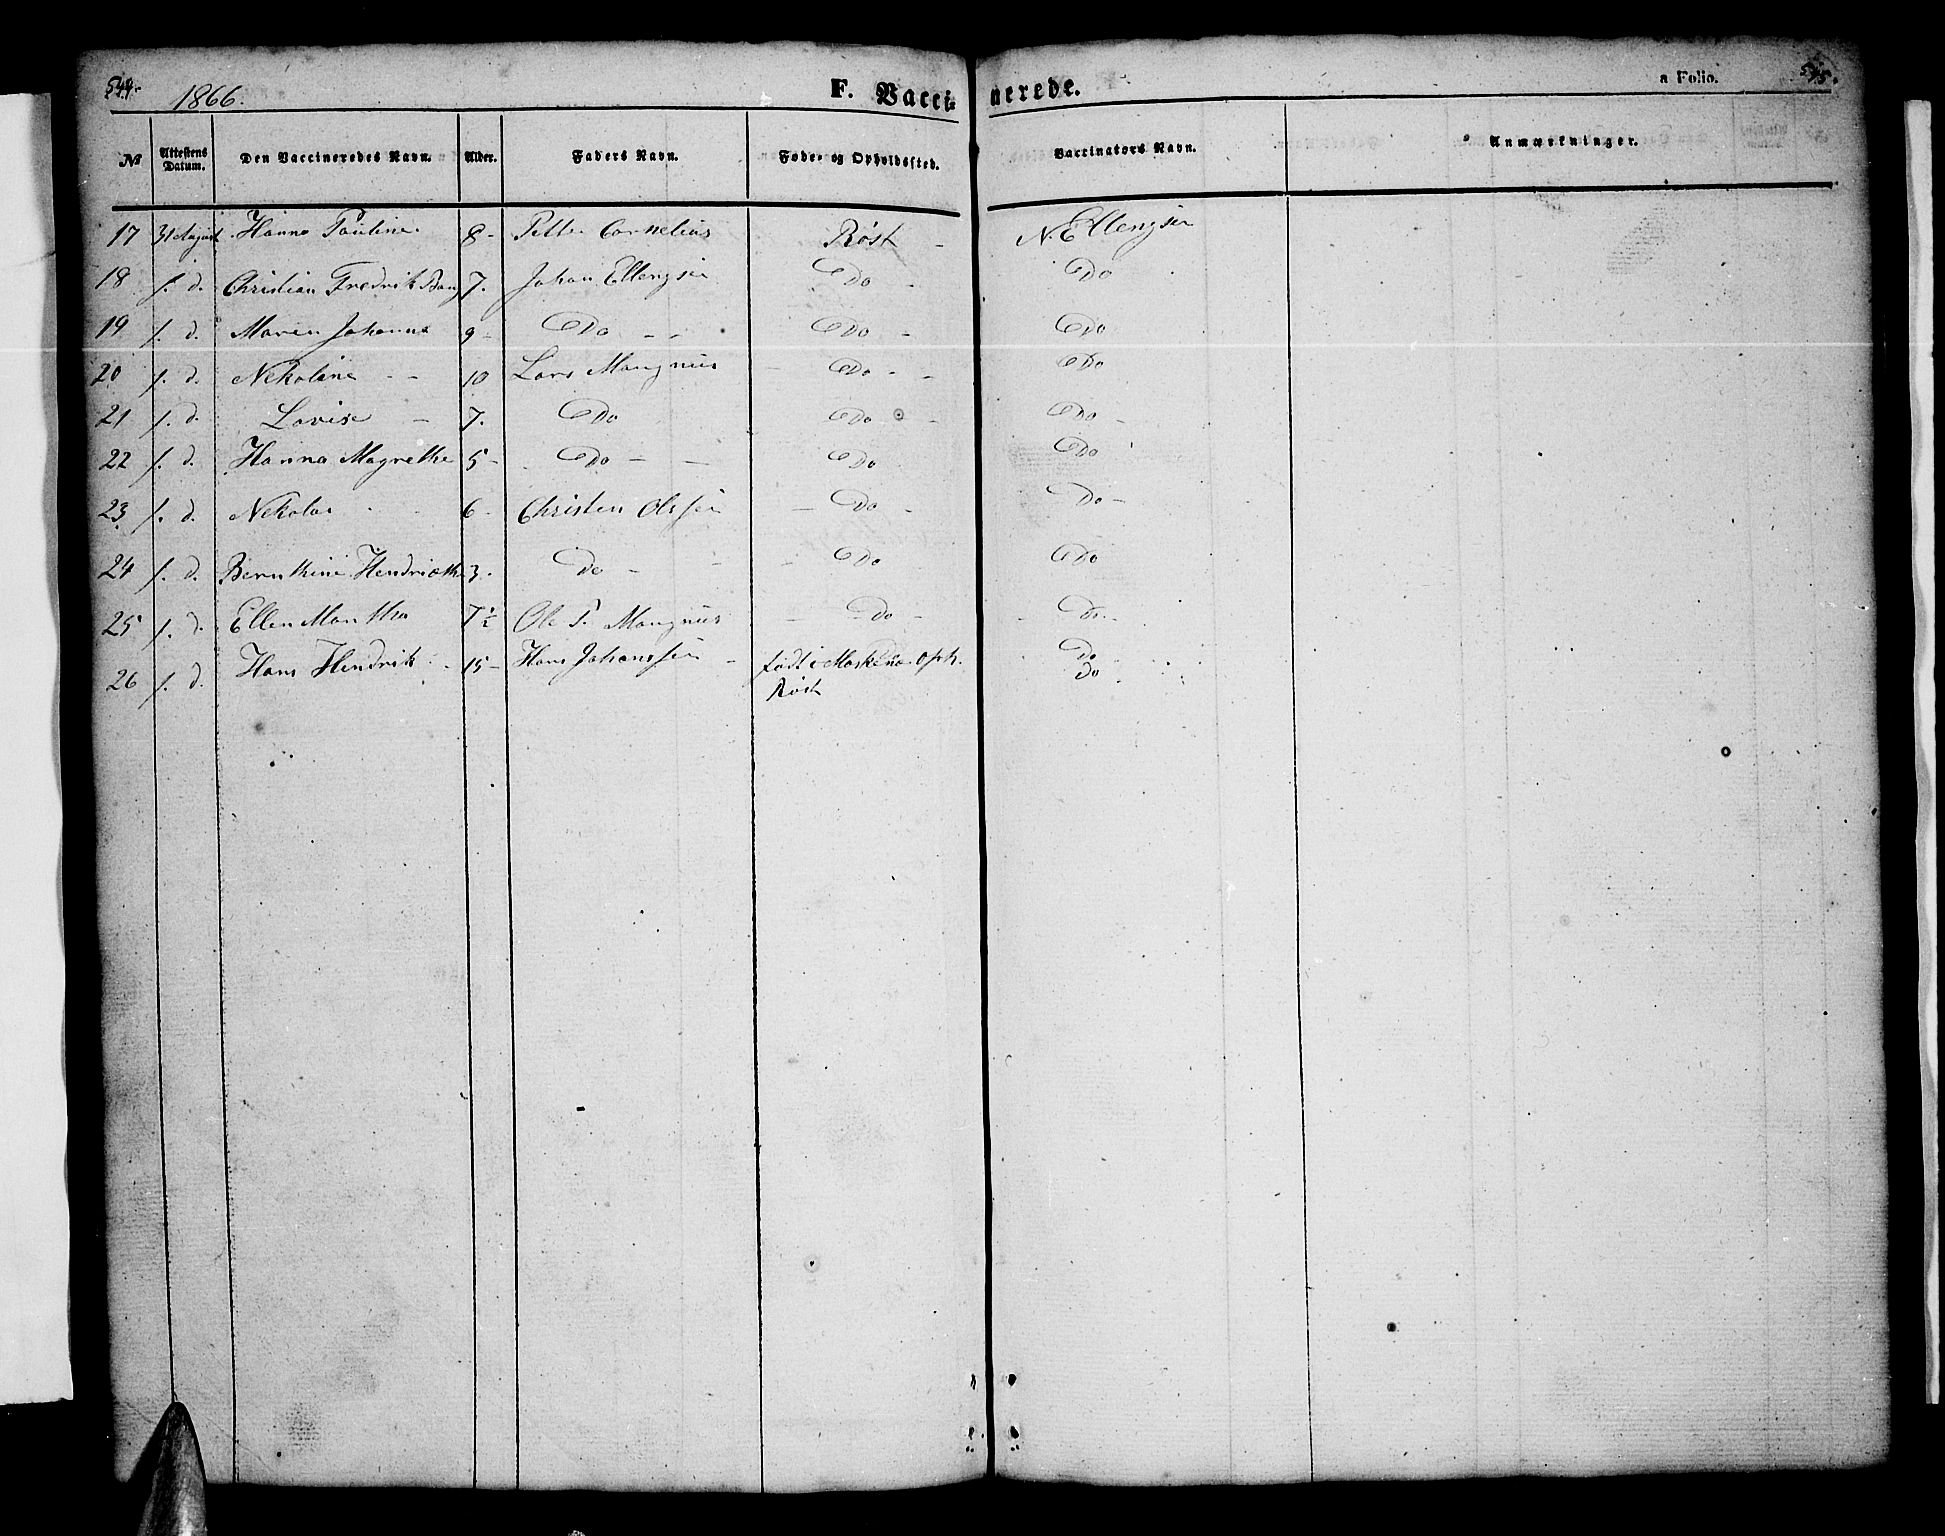 544.
1866.
F. Vacci-
nerede.
a Folio.
545.
№ Attestens Datum. Den Vaccineredes Navn. Alder. Faders Navn. Føde- og Opholdssted. Vaccinators Navn. Anmærkninger.
17 31 August Hanna Pauline 8 - Petter Cornelius Røst - N. Ellengsen
18 s. d. Christian Fredrik Bang 7. Johan Ellengsen Do - Do
19 s. d. Maren Johanna 9 - Do - - Do - Do
20 s. d. Nekoline - - 10 Lars Mangnus Do - - Do
21 s. d. Lovise - 7. Do Do - Do -
22 s. d. Hanna Magrethe 5 - Do - - Do Do
23 s. d. Nekolai - - 6 - Christen Olssen - Do - Do -
24 s. d. Bernthine Hendriethe 3. Do - - - Do Do
25 s. d. Ellen Martha 7½ Ole P. Mangnus - Do - Do
26 s. d. Hans Hendrik - 15 - Hans Johanssen - født i Moskenæ oph. Do
Røst Do